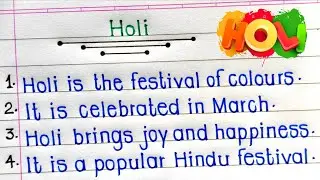 Holi
HOLI
1. Holi is the festival of colours.
2. It is celebrated in March.
3. Holi brings joy and happiness.
4. It is a popular Hindu festival.